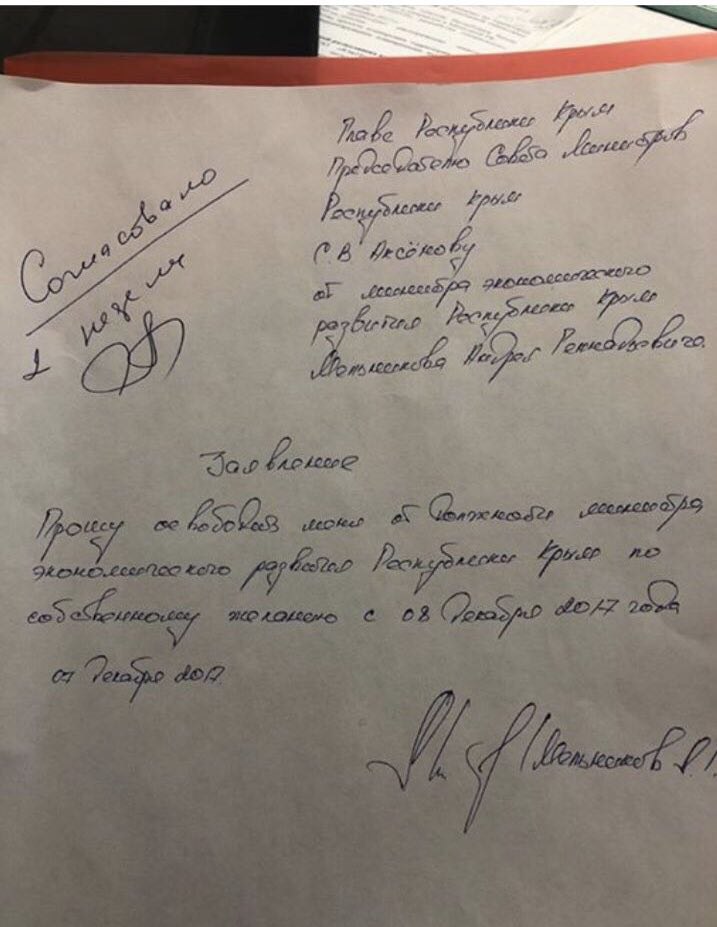 Главе Республики Крым
Председателю Совета Министров
Республики Крым
С.В Аксёнову
от министра экономического
развития Республики Крым
Мельникова Андрея Геннадьевича.
Согласовано
неделя
Заявление
Прошу освободить меня от должности министра
экономического развития Республики Крым по
собственному желанию с 08 декабря 2017 года
07 декабря 2017.
Мельников А.Г.